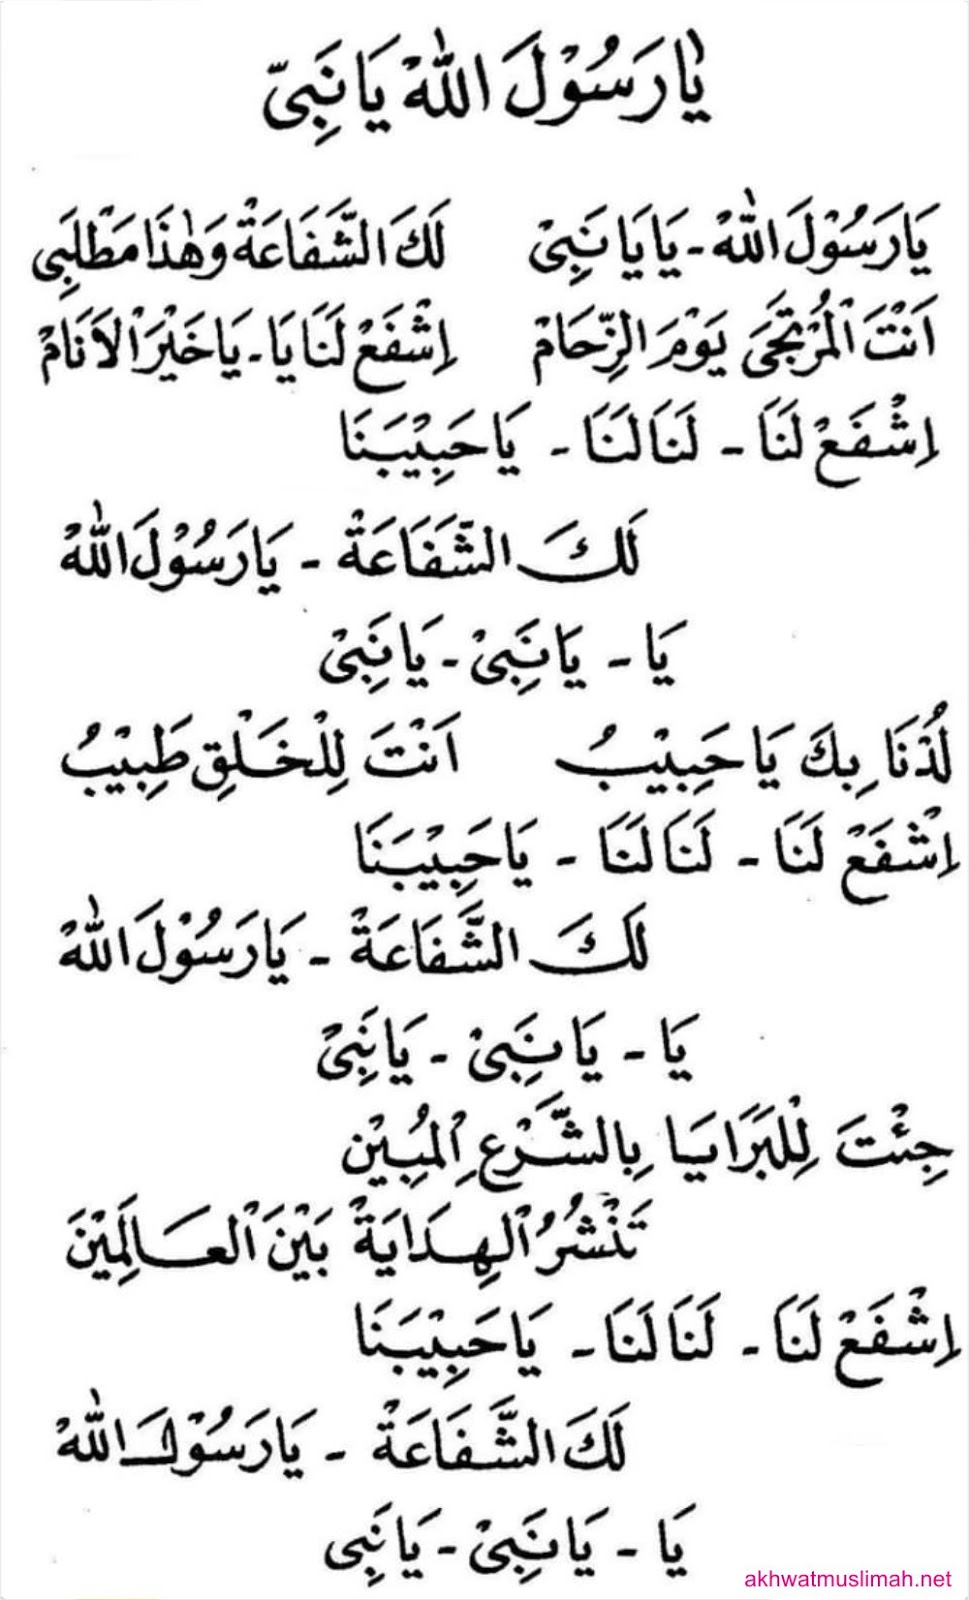 يٰارَسُوْلَ اللهْ يَانَبِيّ
يَارَسُوْلَ اللهْ - يَايَا نَبِيْ لَكَ الشَّفَاعَةْ وَهٰذَا مَطْلَبِي
اَنْتَ الْمُرْتَجَى يَوْمَ الزِّحَامْ اِشْفَعْ لَنَا يَا - يَاخَيْرَ الْاَنَامْ
اِشْفَعْ لَنَا - لَنَا لَنَا - يَاحَبِيْبَنَا
لَكَ الشَّفَاعَةْ - يَارَسُوْلَ اللهْ
يَا - يَانَبِيْ - يَانَبِيْ
لُذْنَا بِكَ يَاحَبِيْبُ اَنْتَ لِلْخَلْقِ طَبِيْبُ
اِشْفَعْ لَنَا - لَنَا لَنَا - يَاحَبِيْبَنَا
لَكَ الشَّفَاعَةْ - يَارَسُوْلَ اللهْ
يَا - يَانَبِيْ - يَانَبِيْ
جِئْتَ لِلْبَرَايَا بِالشَّرْعِ الْمُبِيْن
تَنْشُرُ الْهِدَايَةْ بَيْنَ الْعَالَمِيْنَ
اِشْفَعْ لَنَا - لَنَا لَنَا - يَاحَبِيْبَنَا
لَكَ الشَّفَاعَةْ - يَارَسُوْلَ اللهْ
يَا - يَانَبِيْ - يَانَبِي
akhwatmuslimah.net